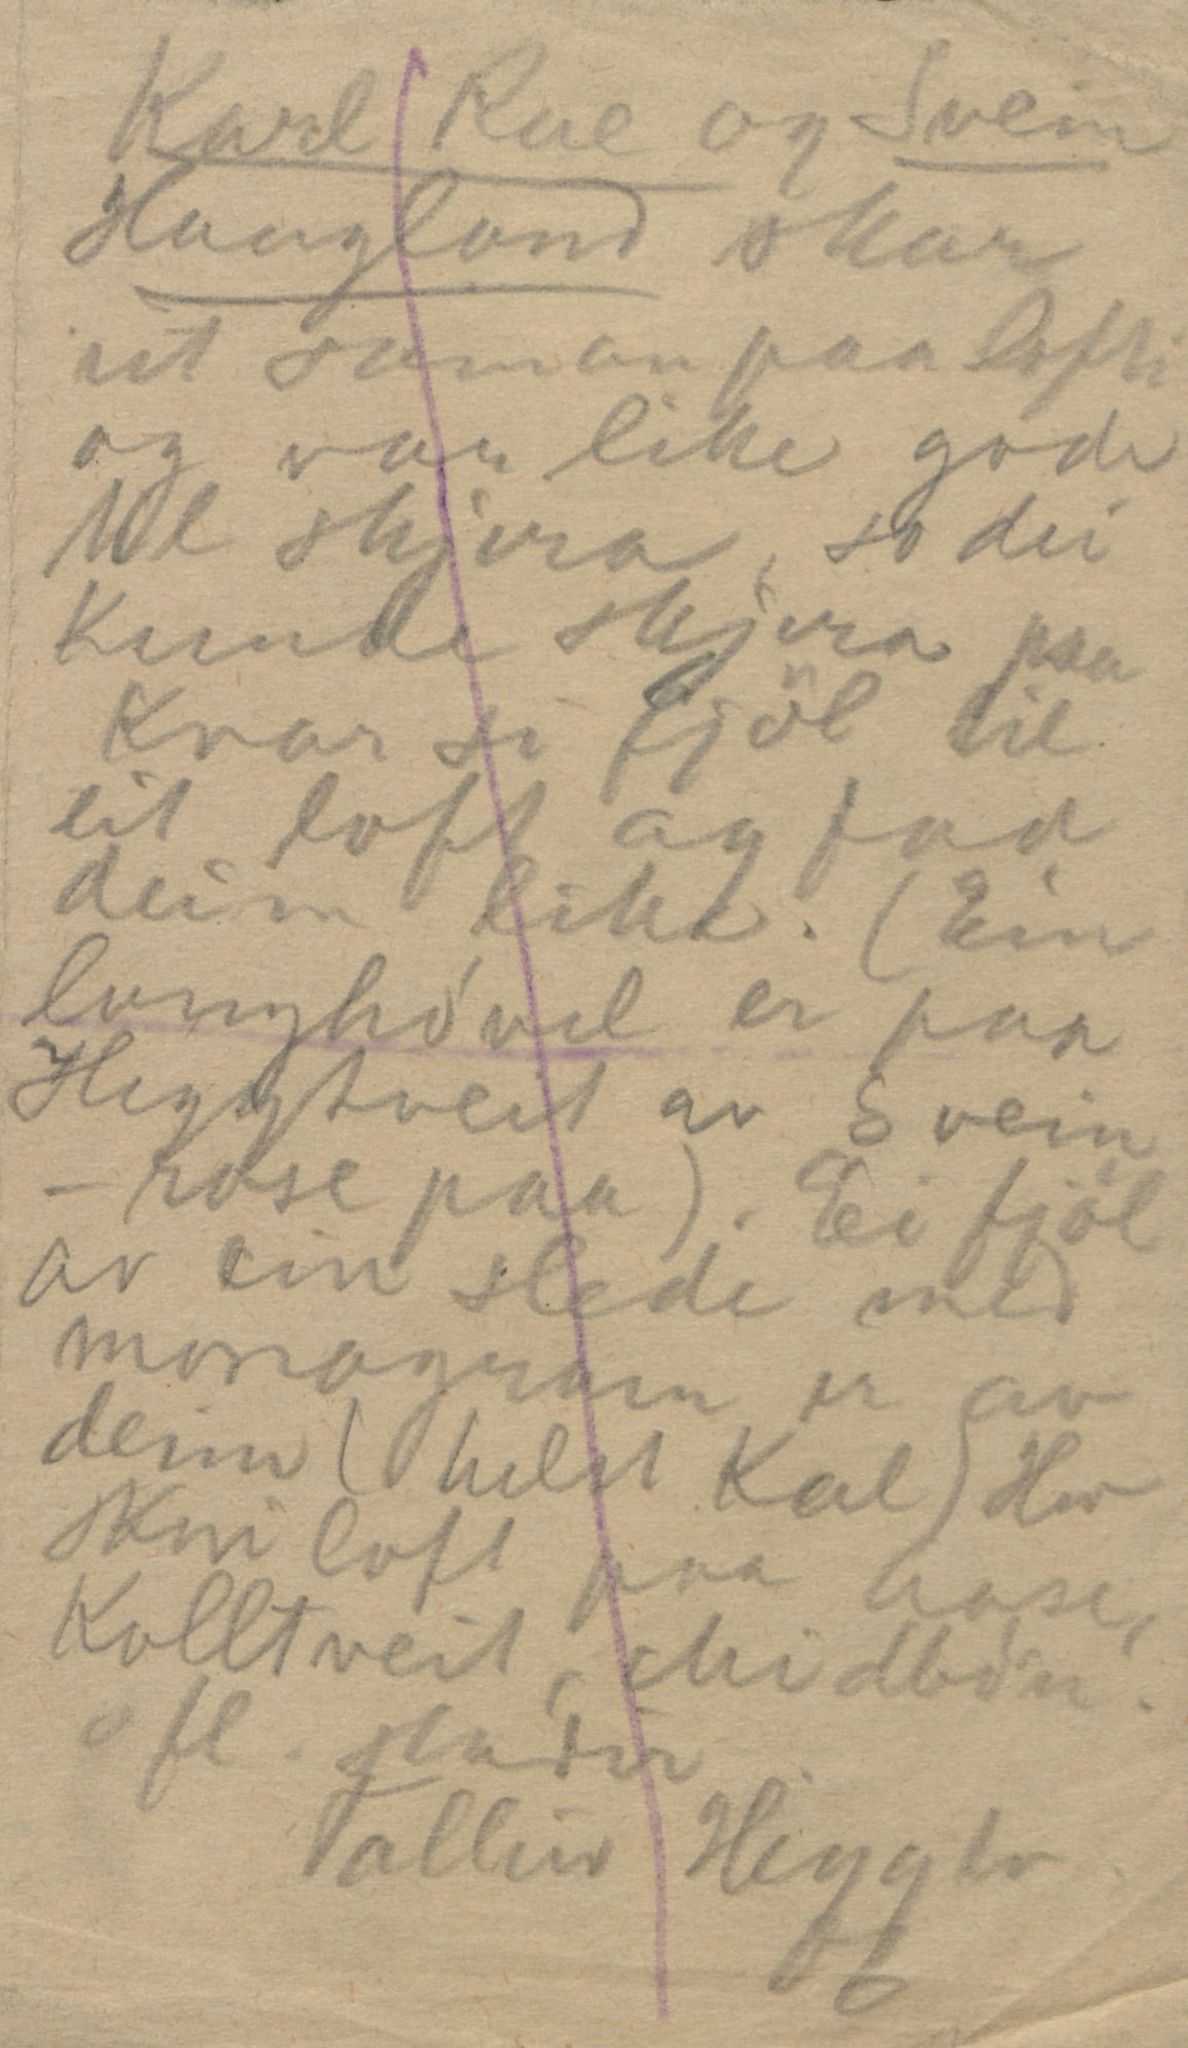 Karl Rue og Svein
Haugland skar
ut saman paa lofti
og var like gode
til skjera, so dei
kunde skjera paa
kvar si fjöl til
eit loft og faa
deim like. (Ein
langhövel er paa
Heggtveit av Svein
- rose paa). Ei fjöl
av ein slede med
monogram er av
deim (helst Kal) Hev
skori loft paa Aase,
Kolltveit, Midbön.
o fl. stader
Heggtv